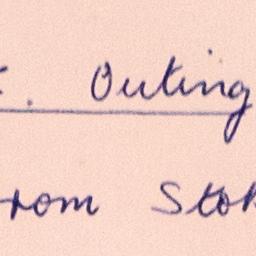 . Outing
from Stok